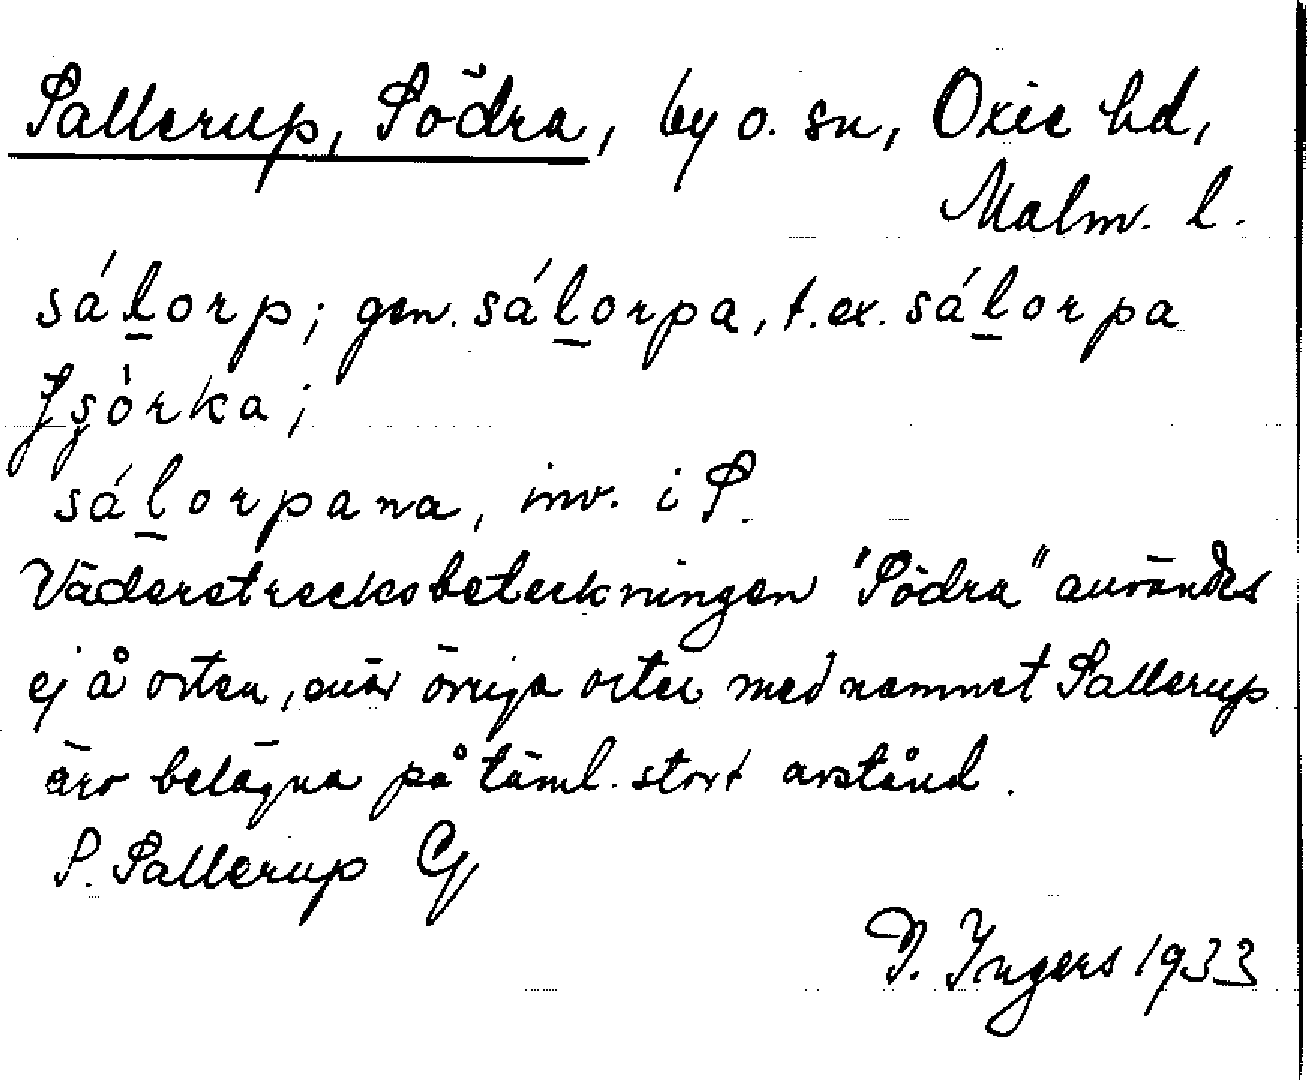 Sallerup, Södra, by o. sn, Oxie hd,
Malm. l.
sálorp; gen. sálorpa, t.ex. sálorpa
sórka;
sálorpana, inv. i S.
Väderstrecksbeteckningen "Södra" användes
ej å orten, enär övriga orter med namnet Sallerup
äro belägna på täml. stort avstånd.
S. Sallerup
I. Ingers 1933